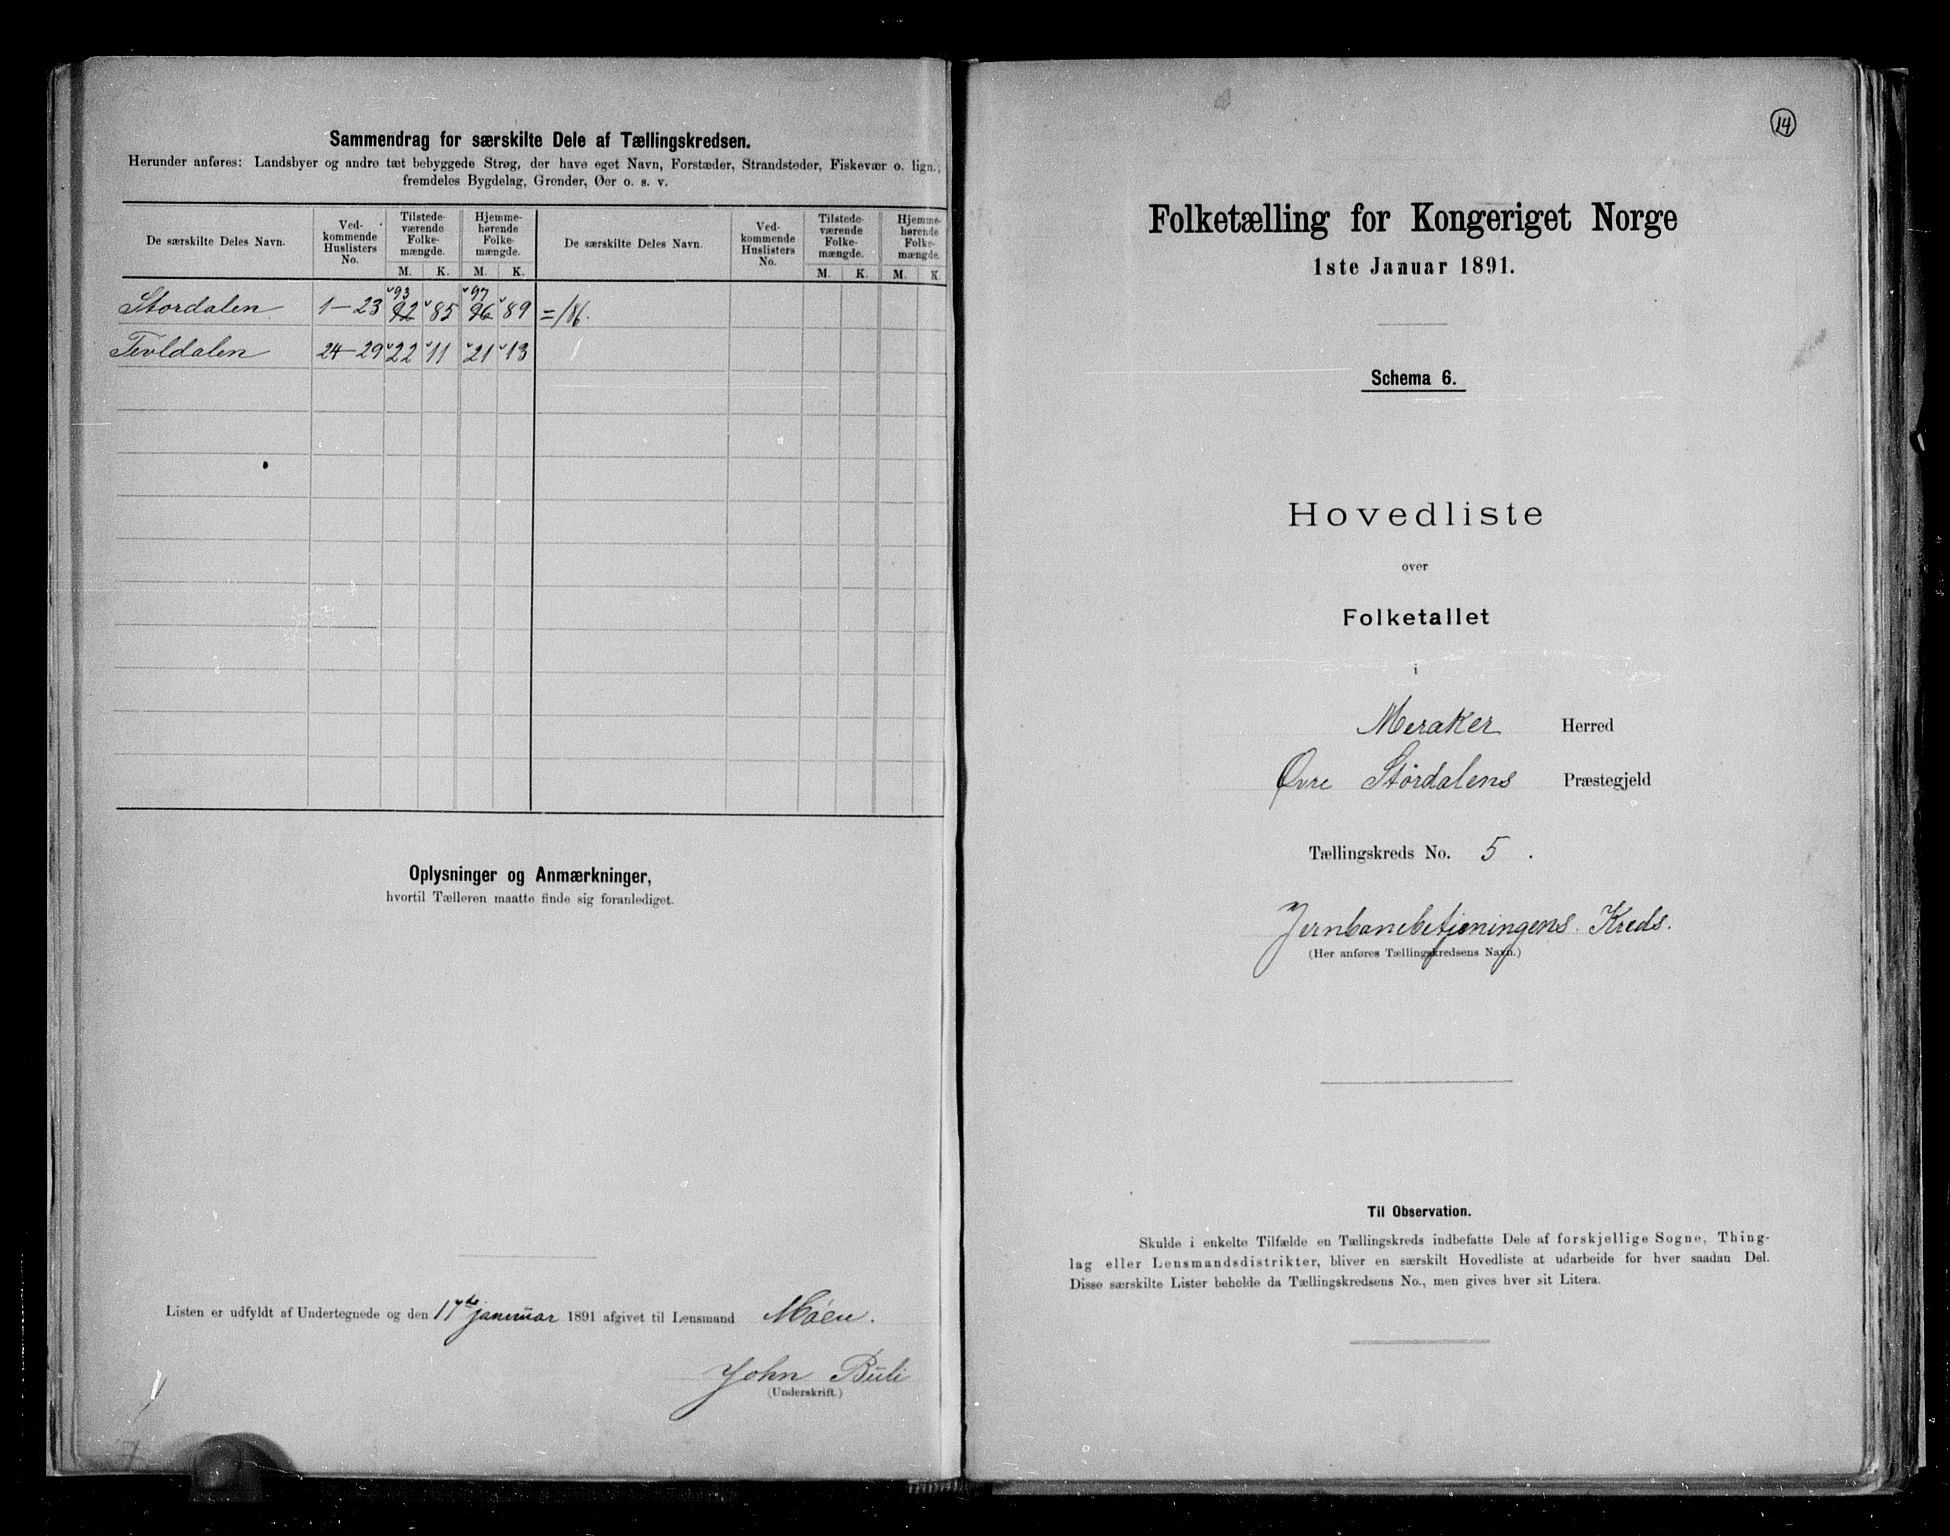 Sammendrag for særskilte Dele af Tællingskredsen.
Herunder anføres: Landsbyer og andre tæt bebyggede Strøg, der have eget Navn, Forstæder, Strandsteder, Fiskevær o. lign.;
fremdeles Bygdelag, Grender, Øer o. s. v.
De særskilte Deles Navn.
Ved-
kommende
Huslisters
No.
Tilstede-
værende
Folke-
mængde.
M. K.
Hjemme-
hørende
Folke-
mængde.
M. K.
De særskilte Deles Navn.
Ved-
kommende
Huslisters
No.
Tilstede-
værende
Folke-
mængde.
M. K.
Hjemme-
hørende
Folke-
mængde.
M. K.
93 97
Stordalen 1–23 92 85 96 89 =186.
Tevldalen 24–29 22 11 21 13
Oplysninger og Anmærkninger,
hvortil Tælleren maatte finde sig foranlediget.
Listen er udfyldt af Undertegnede og den 17de januar 1891 afgivet til Lensmand Moen.
John Buli
(Underskrift.)
14
Folketælling for Kongeriget Norge
1ste Januar 1891.
Schema 6.
Hovedliste
over
Folketallet
i
Meraker Herred
Øvre Størdalens Præstegjeld
Tællingskreds No. 5.
Jernbanebetjeningens Kreds.
(Her anføres Tællingskredsens Navn.)
Til Observation.
Skulde i enkelte Tilfælde en Tællingskreds indbefatte Dele af forskjellige Sogne, Thing-
lag eller Lensmandsdistrikter, bliver en særskilt Hovedliste at udarbeide for hver saadan Del.
Disse særskilte Lister beholde da Tællingskredsens No., men gives hver sit Litera.